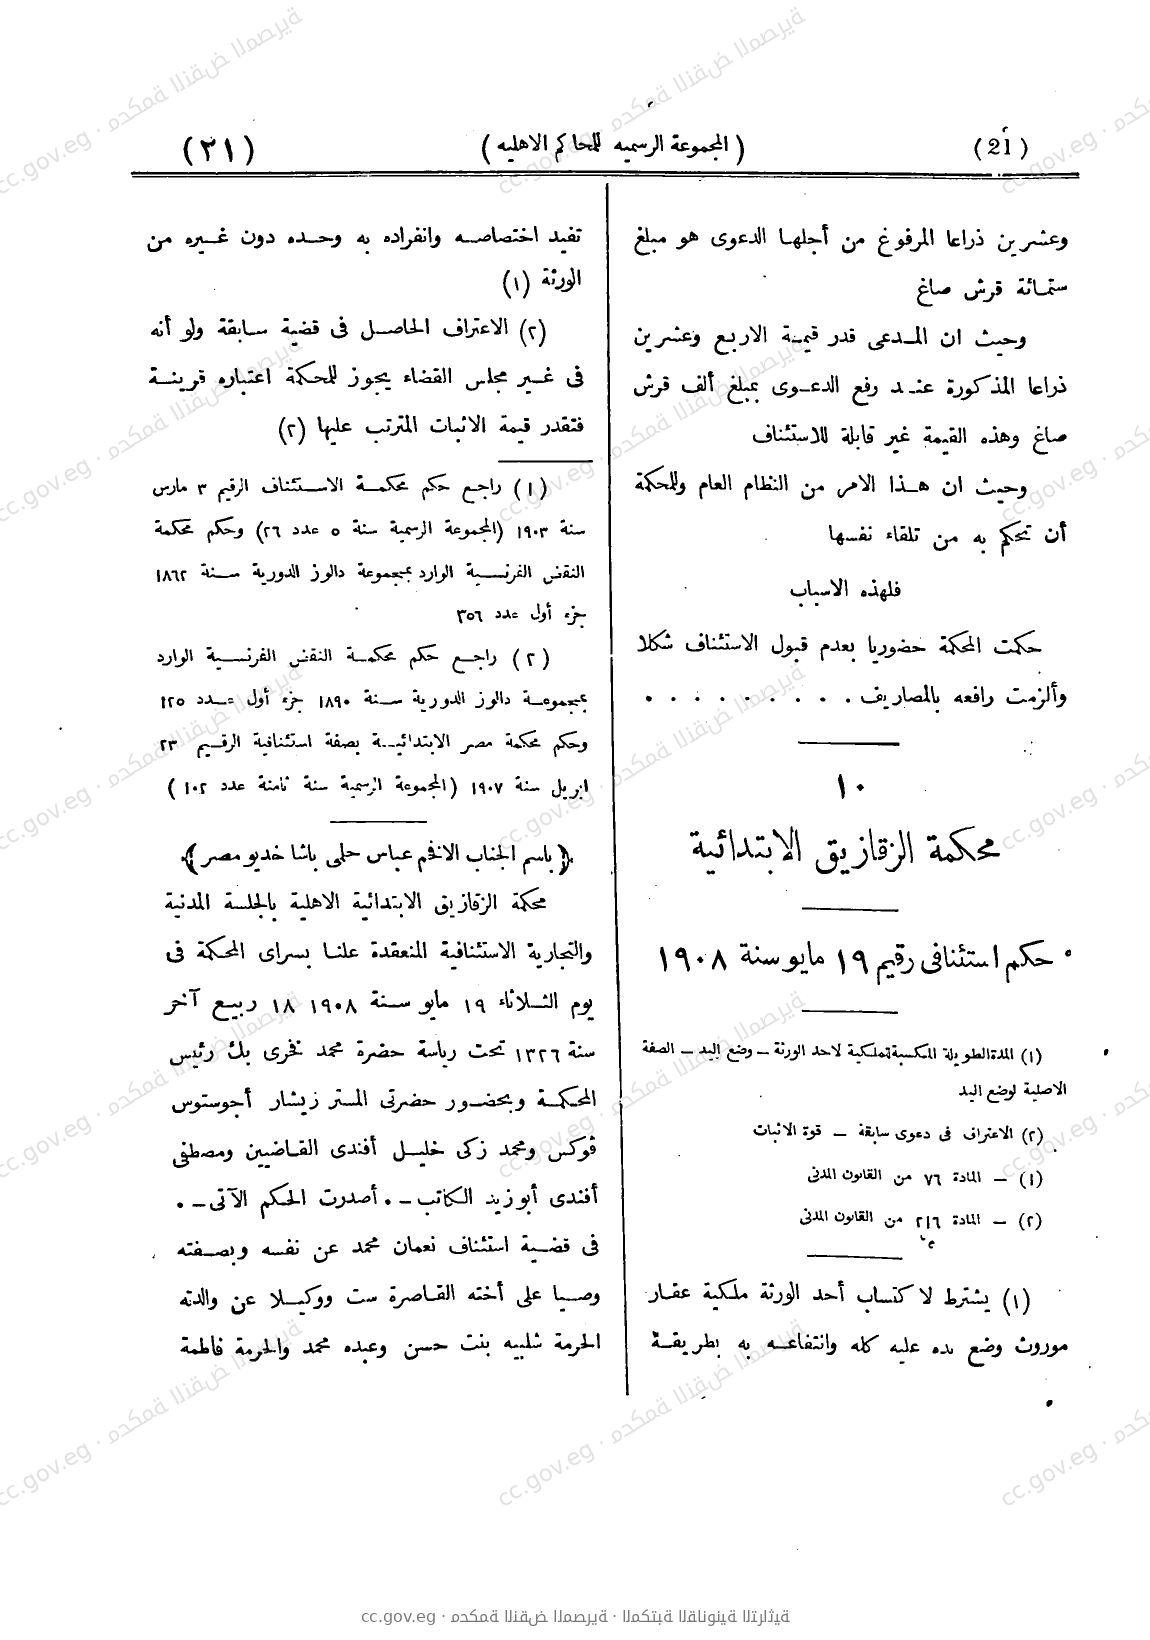 (21)
(المجموعة الرسميه للمحاكم الاهليه)
(٢١)
وعشرين ذراعا المرفوع من أجلها الدعوى هو مبلغ
ستمائة قرش صاغ
وحيث ان المدعى قدر قيمة الاربع وعشرين
ذراعا المذكورة عند رفع الدعوى بمبلغ ألف قرش
صاغ وهذه القيمة غير قابلة للاستئناف
وحيث ان هذا الامر من النظام العام وللمحكمة
أن تحكم به من تلقاء نفسها
فلهذه الاسباب
حكمت المحكمة حضوريا بعدم قبول الاستئناف شكلا
وألزمت رافعه بالمصاريف . . . . . . . . .
١٠
محكمة الزقازيق الابتدائية
حكم استئنافى رقيم ١٩ مايو سنة ١٩٠٨
(١) المدة الطويلة المكسبة لملكية لاحد الورثة – وضع اليد – الصفة
الاصلية لوضع اليد
(٢) الاعتراف فى دعوى سابقة – قوة الاثبات
(١) – المادة ٧٦ من القانون المدنى
(٢) – المادة ٢١٦ من القانون المدنى
(١) يشترط لاكتساب أحد الورثة ملكية عقار
موروث وضع يده عليه كله وانتفاعه به بطريقة
تفيد اختصاصه وانفراده به وحده دون غيره من
الورثة (١)
(٢) الاعتراف الحاصل فى قضية سابقة ولو أنه
فى غير مجلس القضاء يجوز للمحكمة اعتباره قرينة
فتقدر قيمة الاثبات المترتب عليها (٢)
(١) راجع حكم محكمة الاستئناف الرقيم ٣ مارس
سنة ١٩٠٣ (المجموعة الرسمية سنة ٥ عدد ٢٦) وحكم محكمة
النقض الفرنسية الوارد بمجموعة دالوز الدورية سنة ١٨٦٢
جزء أول عدد ٣٥٦
(٢) راجع حكم محكمة النقض الفرنسية الوارد
بمجموعة دالوز الدورية سنة ١٨٩٠ جزء أول عدد ١٢٥
وحكم محكمة مصر الابتدائية بصفة استئنافية الرقيم ٢٣
ابريل سنة ١٩٠٧ (المجموعة الرسمية سنة ثامنة عدد ١٠٢)
﴿باسم الجناب الافخم عباس حلمى باشا خديو مصر﴾
محكمة الزقازيق الابتدائية الاهلية بالجلسة المدنية
والتجارية الاستئنافية المنعقدة علنا بسراى المحكمة فى
يوم الثلاثاء ١٩ مايو سنة ١٩٠٨ ١٨ ربيع آخر
سنة ١٣٢٦ تحت رياسة حضرة محمد فخرى بك رئيس
المحكمة وبحضور حضرتى المستر زيشار أجوستوس
ڤوكس ومحمد زكى خليل أفندى القاضيين ومصطفى
أفندى أبو زيد الكاتب – . أصدرت الحكم الآتى – .
فى قضية استئناف نعمان محمد عن نفسه وبصفته
وصيا على أخته القاصرة ست ووكيلا عن والدته
الحرمة شلبيه بنت حسن وعبده محمد والحرمة فاطمة
cc.gov.eg · محكمة النقض المصرية · المكتبة القانونية التراثية